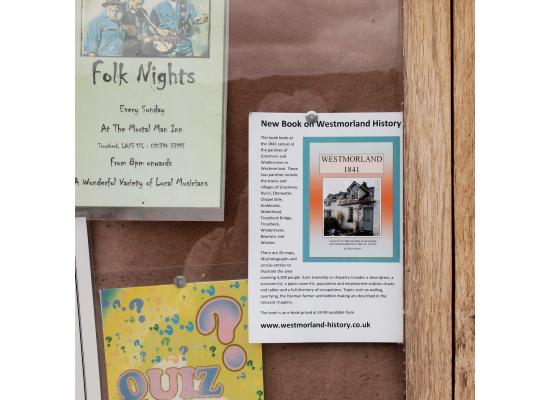 Folk Nights
Every Sunday
At The Mortal Man Inn
Troutbeck, LA23 1PL - 015394 33193
From 8pm onwards
A Wonderful Variety of Local Musicians
New Book on Westmorland History
This book looks at
the 1841 census in
the parishes of
Grasmere and
Windermere in
Westmorland. These
two parishes include
the towns and
villages of Grasmere,
Rydal, Elterwater,
Chapel Stile,
Ambleside,
Waterhead,
Troutbeck Bridge,
Troutbeck,
Windermere,
Bowness and
Winster.
There are 20 maps,
46 photographs and
census entries to
illustrate the area
covering 4,300 people. Each township or chapelry includes a description, a
surname list, a place name list, population and employment statistic charts
and tables and a full directory of occupations. Topics such as walling,
quarrying, the Yeoman farmer and bobbin making are described in the
relevant chapters.
The book is an e-book priced at £4.99 available from
www.westmorland-history.co.uk
WESTMORLAND
1841
QUIZ